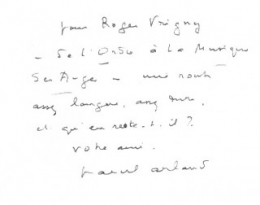 pour Roger Vrigny
– De l'Orse à la Musique
des Anges – une route
assez longue, assez dure,
et qu'en reste-t-il ?
votre ami.
Marcel Arland